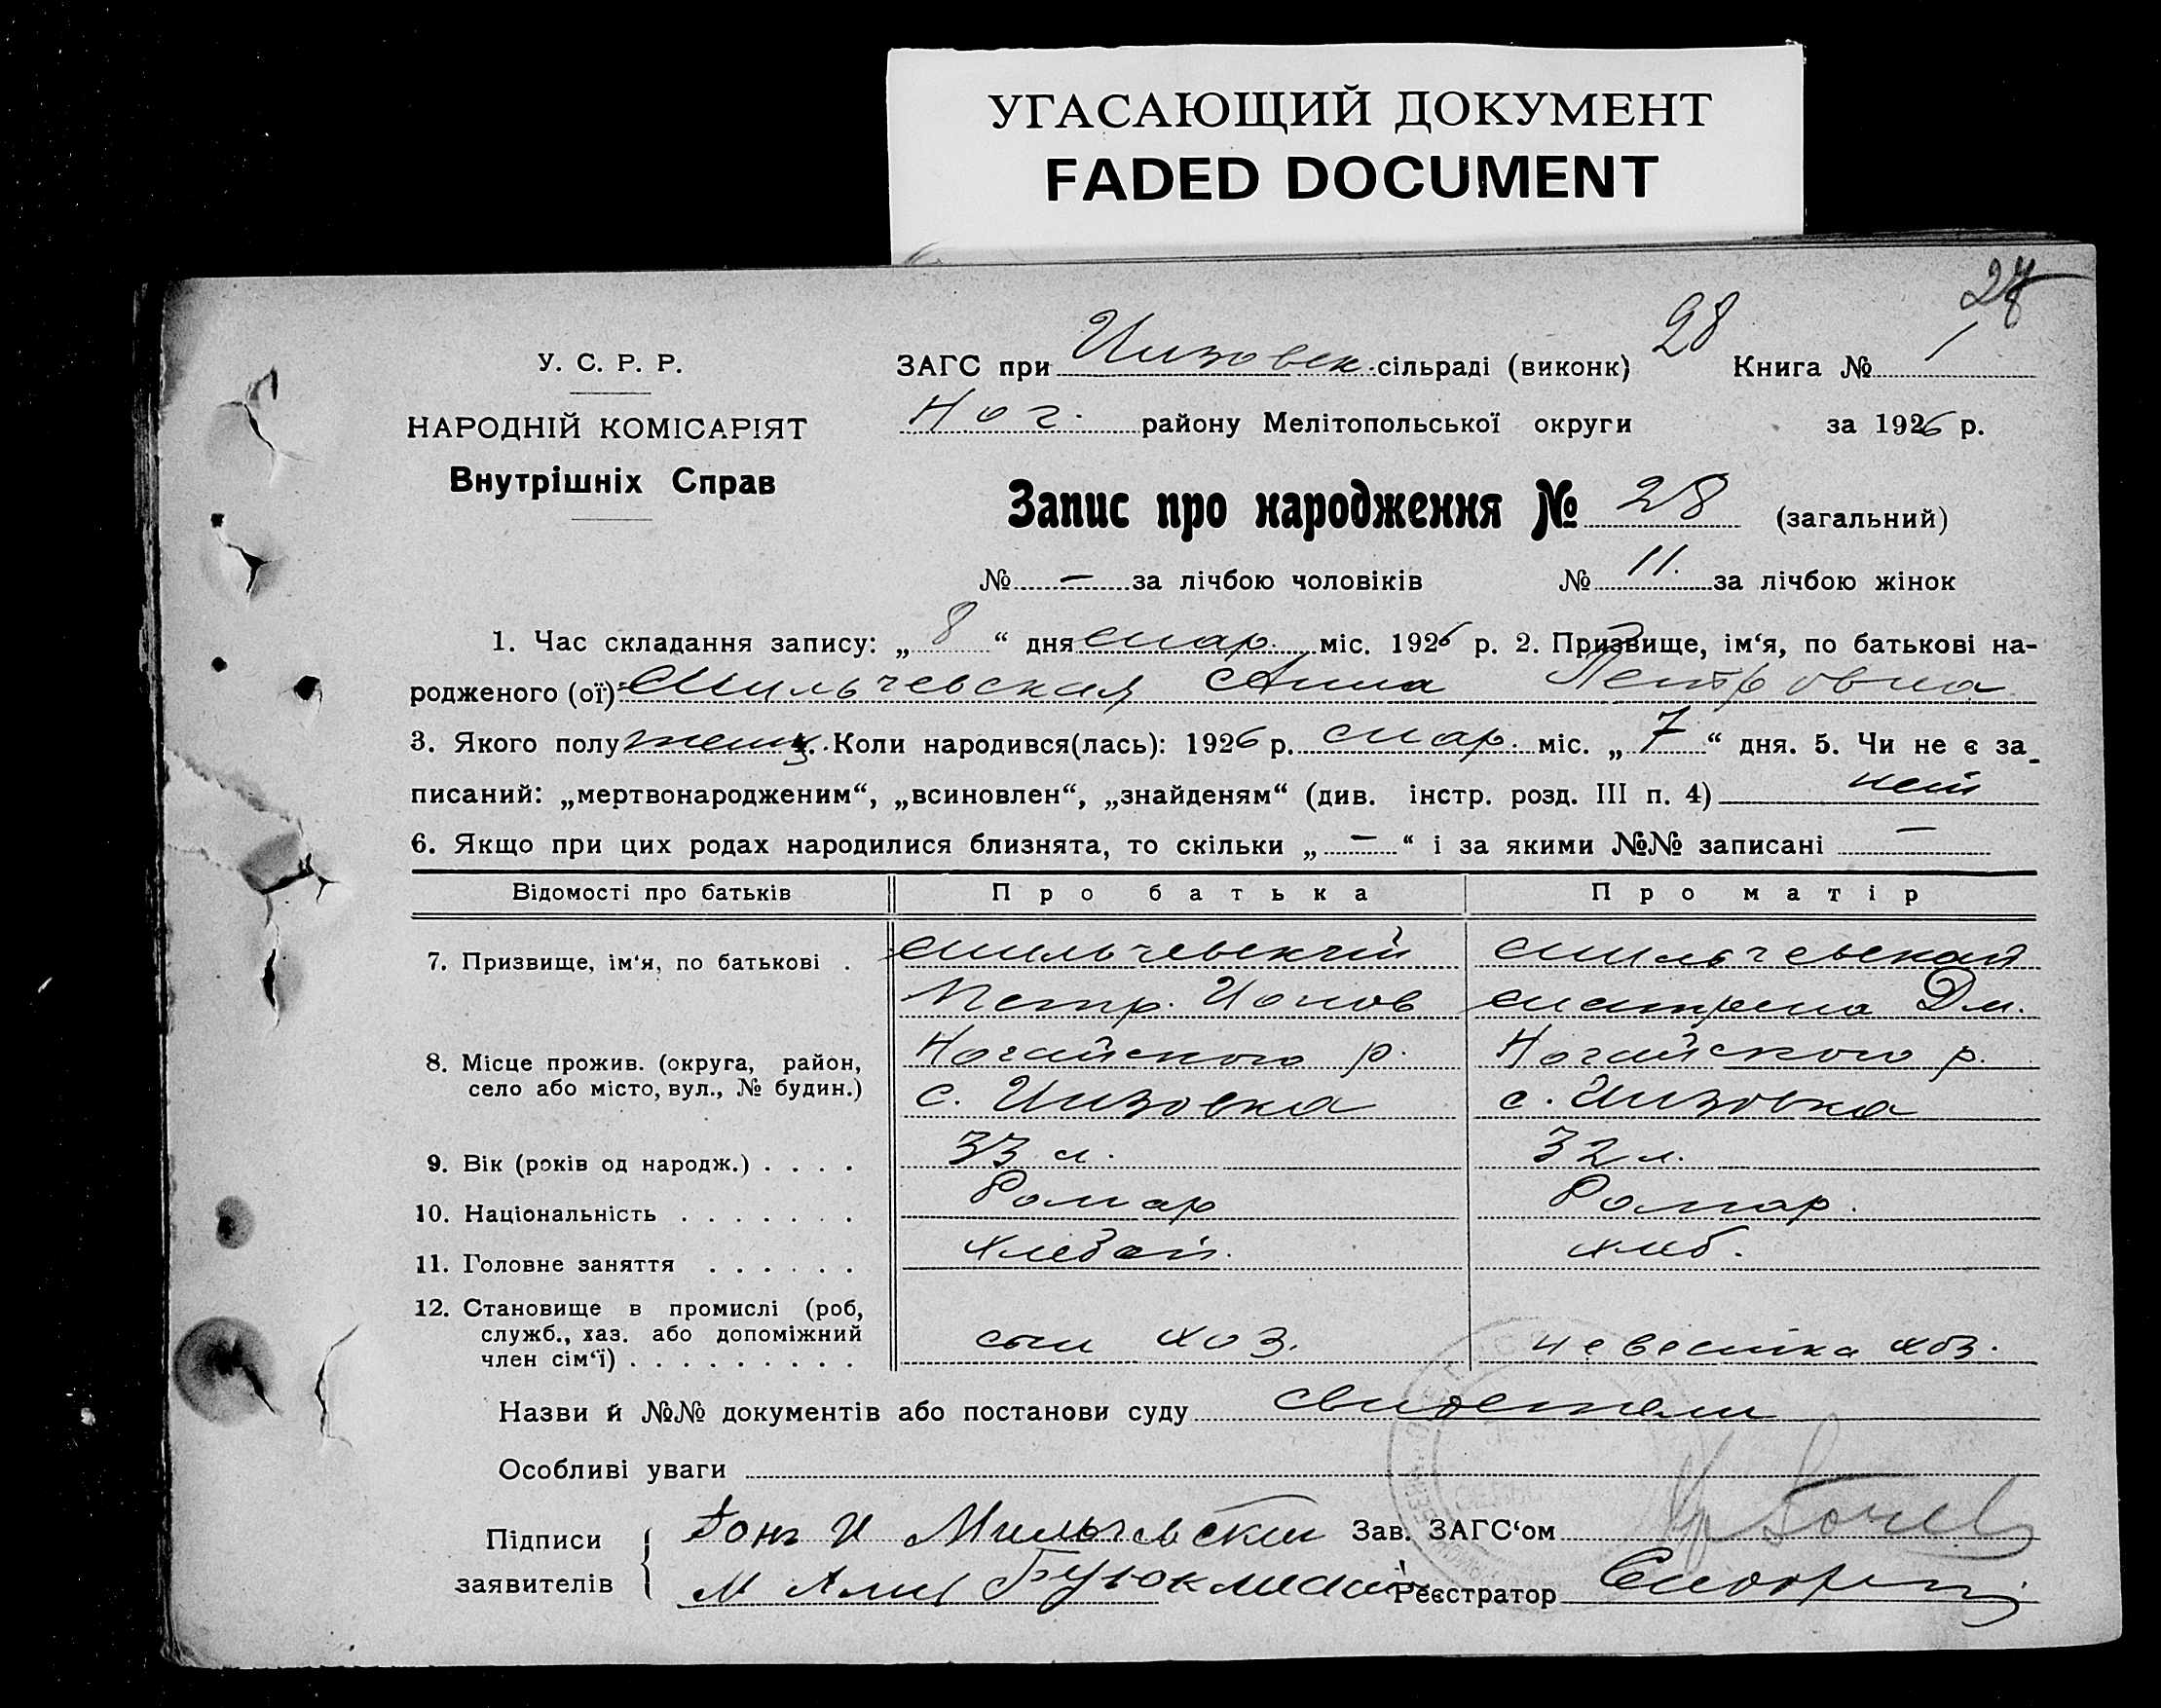 УГАСАЮЩИЙ ДОКУМЕНТ
FADED DOCUMENT
28
У. С. Р. Р.
НАРОДНІЙ КОМІСАРІЯТ
Внутрішніх Справ
ЗАГС при Инзовск. сільраді (виконк) 28 Книга № 1
Ног. району Мелітопольської округи за 1926 р.
Запис про народження № 28 (загальний)
№ — за лічбою чоловіків № 11. за лічбою жінок
1. Час складання запису: „ 8 “ дня мар. міс. 1926 р. 2. Призвище, ім‘я, по батькові на-
родженого (ої): Мильчевская Анна Петровна
3. Якого полу женск. Коли народився(лась): 1926 р. мар. міс. „ 7 “ дня. 5. Чи не є за-
писаний: „мертвонародженим“, „всиновлен“, „знайденям“ (див. інстр. розд. III п. 4) нет
6. Якщо при цих родах народилися близнята, то скільки „ — “ і за якими №№ записані —
Відомості про батьків Про батька Про матір
7. Призвище, ім‘я, по батькові . Мильчевский Мильчевская
Петр. Ионов Матрена Дм.
8. Місце прожив. (округа, район, Ногайского р. Ногайского р.
село або місто, вул., № будин.) с. Инзовка с. Инзовка
9. Вік (років од народж.) . . . . 33 л. 32 л.
10. Національність . . . . . . . Болгар Болгар.
11. Головне заняття . . . . . . хлебоп. хлеб.
12. Становище в промислі (роб,
служб., хаз. або допоміжний сын хоз. невестка хоз.
член сім‘ї) . . . . . . . . . .
Назви й №№ документів або постанови суду свидетели
Особливі уваги
Підписи Мильчевски Зав. ЗАГС‘ом
заявителів Буюкли Реєстратор